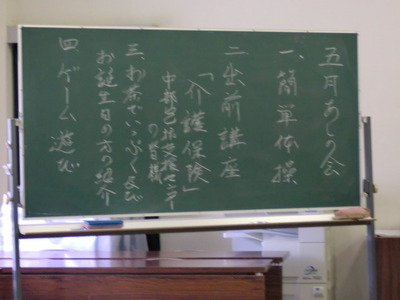 五月あしの会
一、簡単体操
二、出前講座
「介護保険」
中部包括支援センター
の皆様
三、お茶でいっぷく及び
お誕生日の方の紹介
四、ゲーム遊び